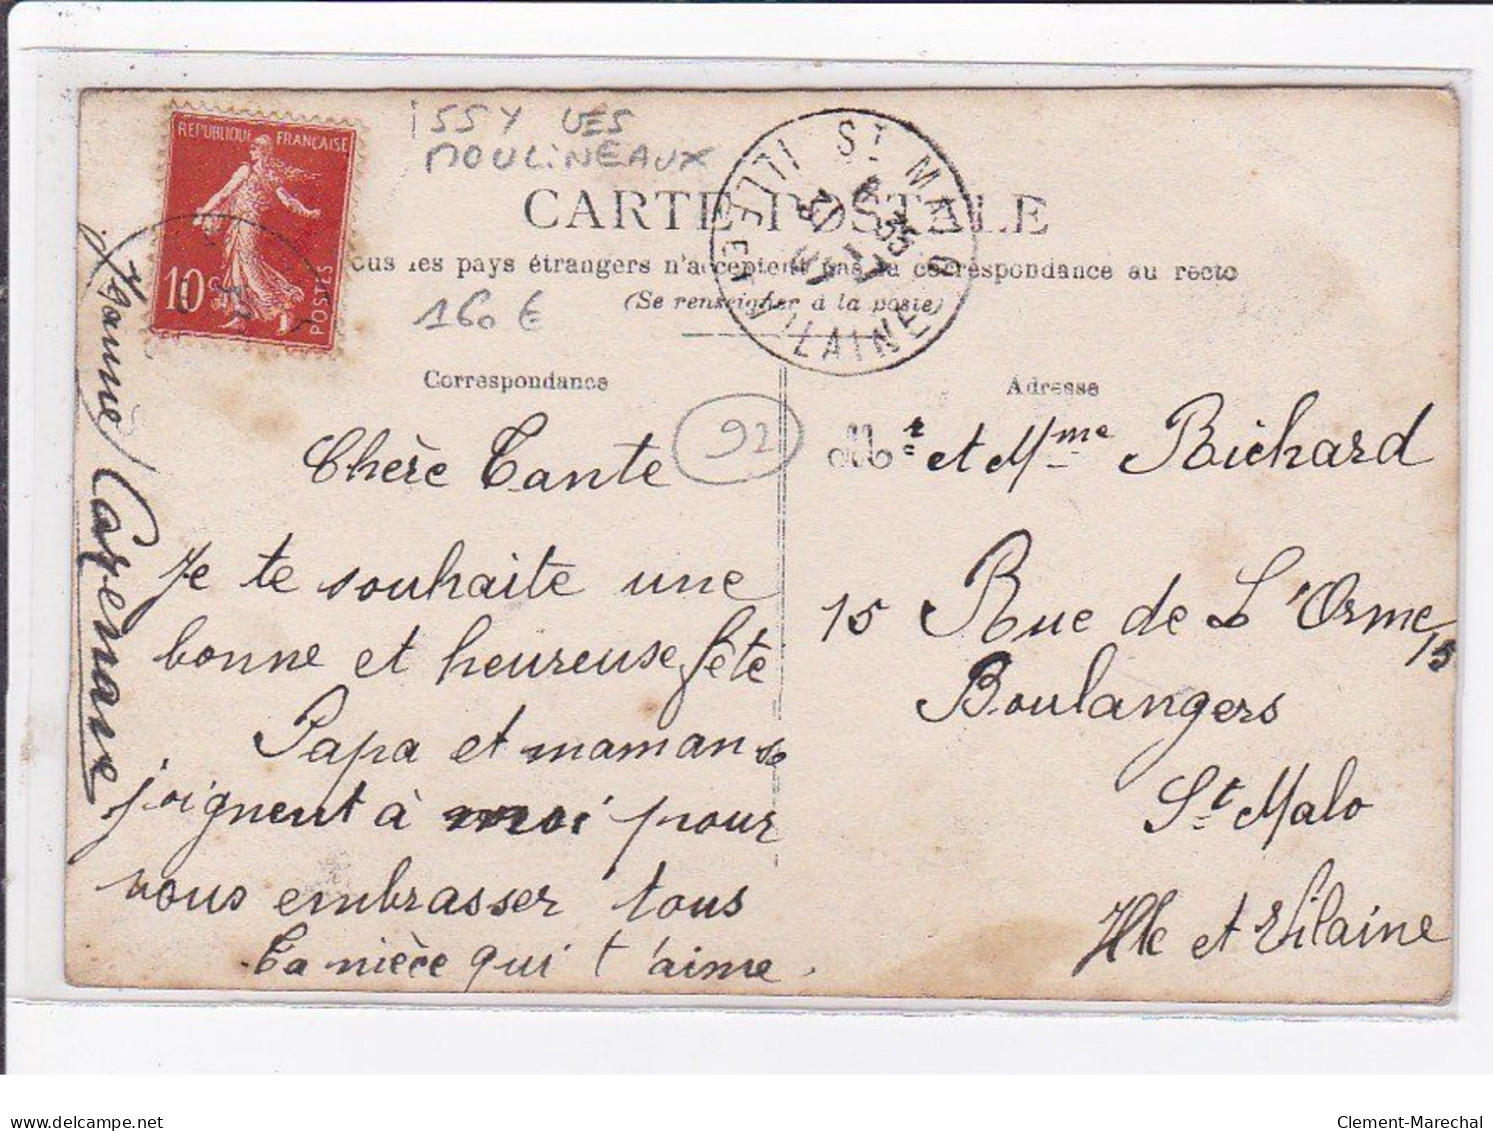 ISSY LES
MOULINEAUX
RÉPUBLIQUE FRANÇAISE
10c
POSTES
ST MALO
ILLE-ET-VILAINE
CARTE POSTALE
ous les pays étrangers n'acceptent pas la correspondance au recto
(Se renseigner à la poste)
160 €
Correspondance
92
Chère Tante
Je te souhaite une
bonne et heureuse fête
Papa et maman se
joignent à moi pour
vous embrasser tous
Ta nièce qui t'aime.
Caremane
Adresse
Mr et Mme Richard
15 Rue de L'Orme 15
Boulangers
St Malo
Ille et Vilaine
delcampe.net
Clement-Marechal